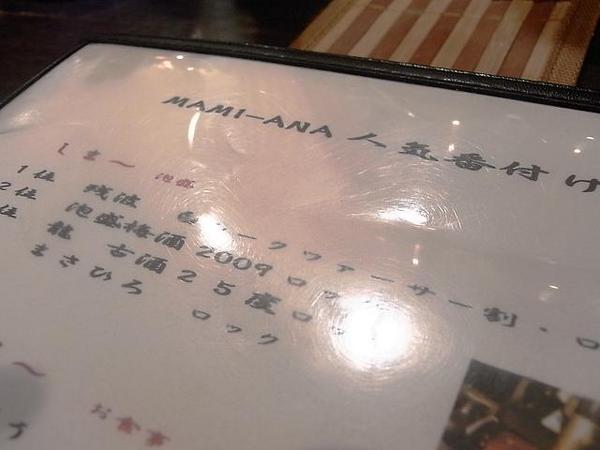 MAMI-ANA 人気番付け
しま～ 泡盛
1位 残波 シークヮーサー割・ロ
2位 泡盛梅酒 2009 ロック
位 龍 古酒25度 ロッ
まさひろ ロック
～ お食事
う